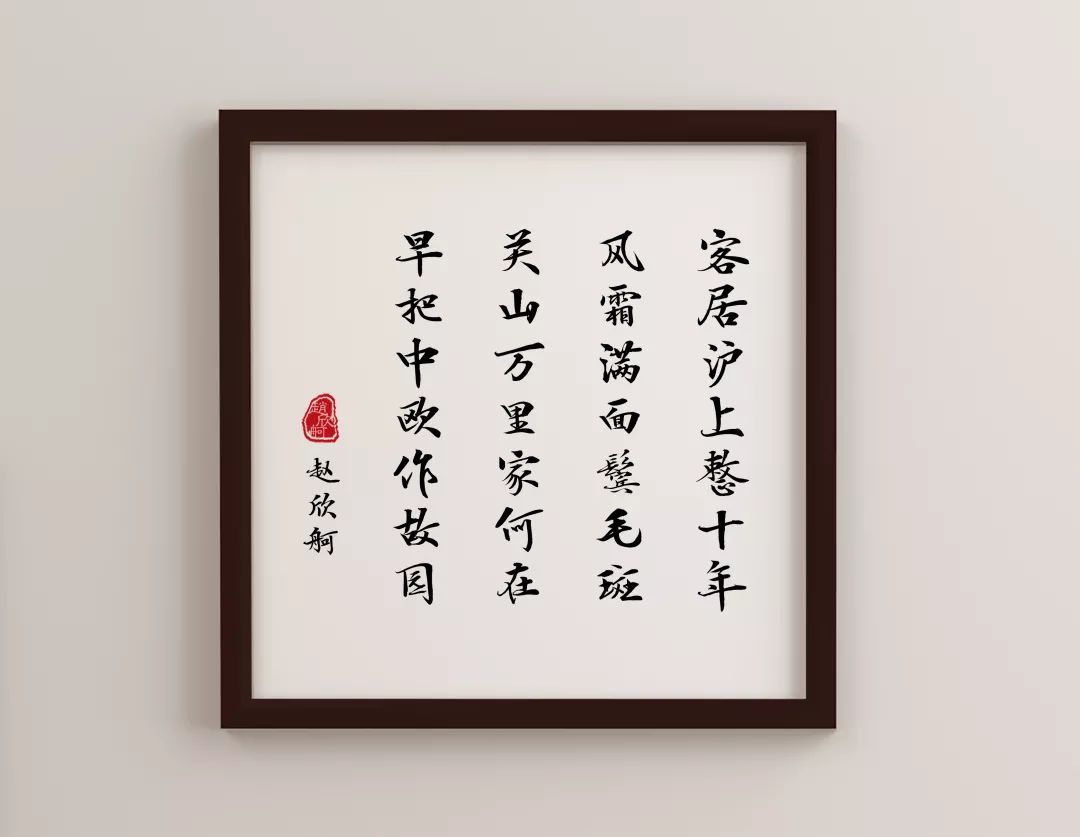 客居沪上整十年
风霜满面鬓毛斑
关山万里家何在
早把中欧作故园
赵欣舸
趙欣舸